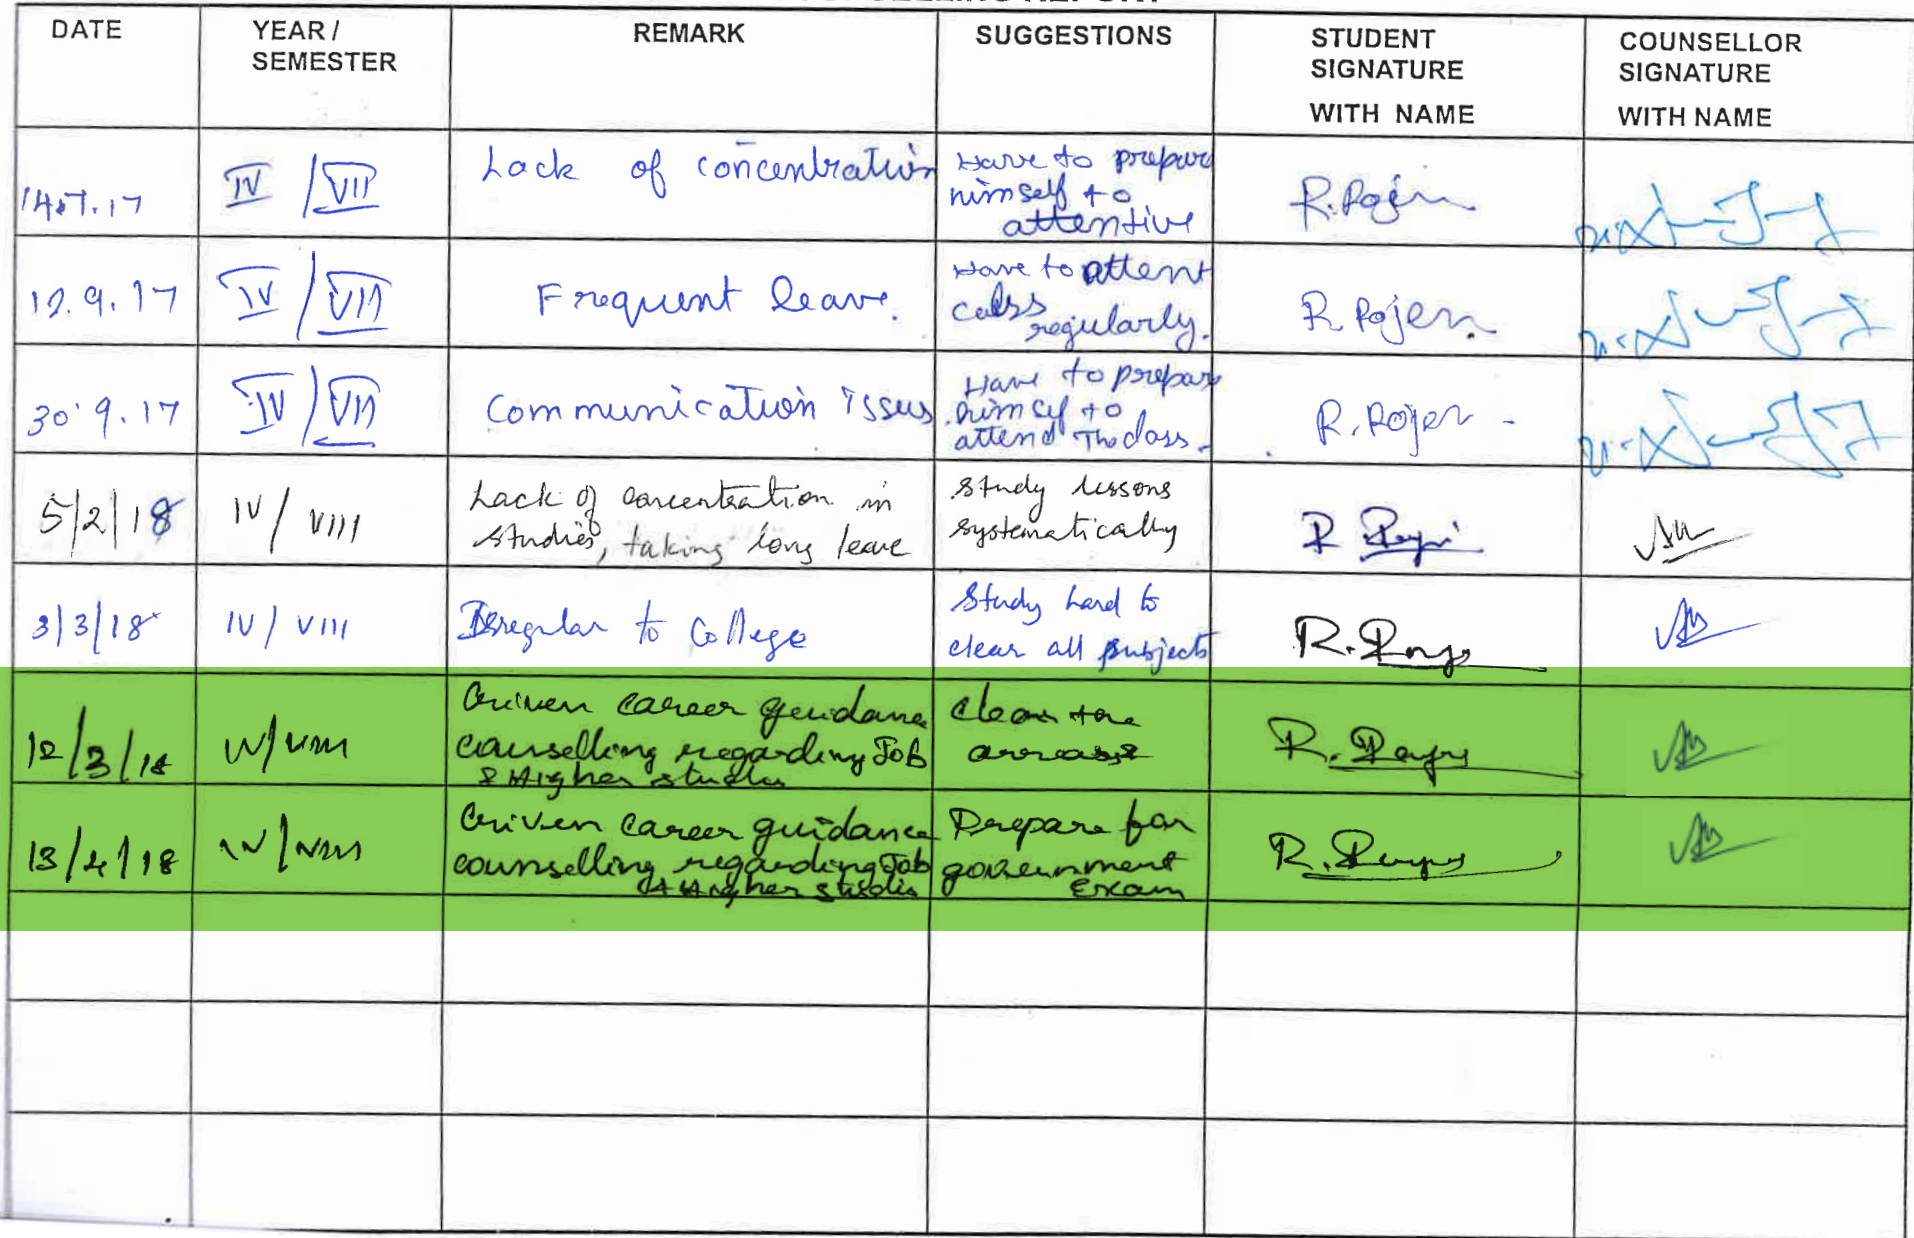 DATE
YEAR /
SEMESTER
REMARK
SUGGESTIONS
STUDENT
SIGNATURE
WITH NAME
COUNSELLOR
SIGNATURE
WITH NAME
14.7.17
IV / VII
Lack of concentration
Have to prepare
himself to
attentive
R. Rojen
12.9.17
IV / VII
Frequent leave.
Have to attent
calss
regularly.
R. Rojen
30.9.17
IV / VII
Communication issus
Have to prepare
himself to
attend The class.
R. Rojen
5/2/18
IV / VIII
Lack of concentration in
studies, taking long leave
study lessons
systematically
3/3/18
IV / VIII
Irregular to College
Study hard to
clear all subjects
12/3/18
IV/VIII
Given career guidance
counselling regarding Job
& Higher studies
Clear the
13/4/18
IV/VIII
Given career guidance
counselling regarding Job
& Higher studies
Prepare for
government
Exam